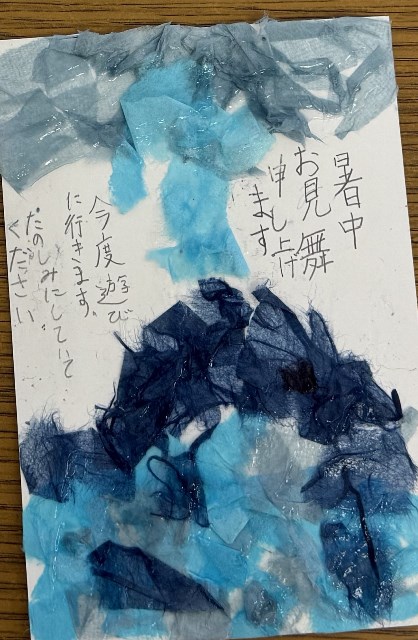 暑中
お見舞
申し上げ
ます
今度遊び
に行きます。
たのしみにしていて
ください